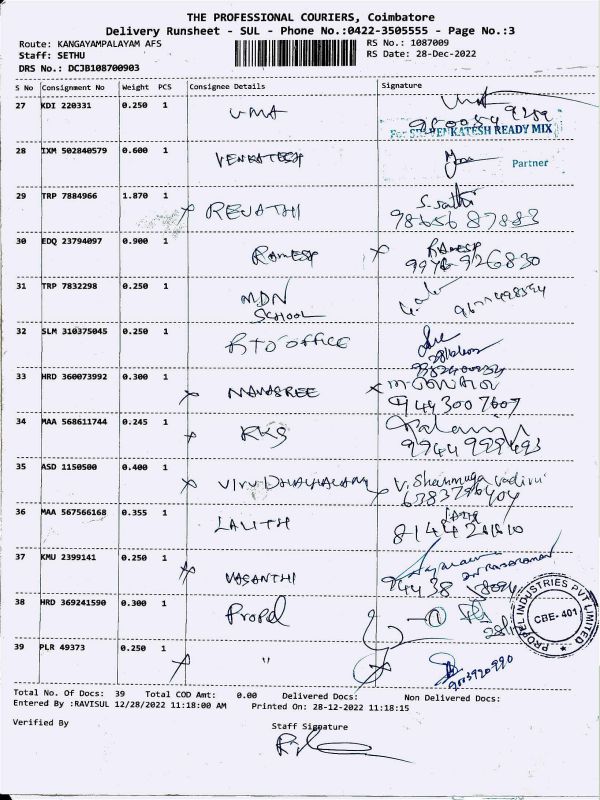 THE PROFESSIONAL COURIERS, Coimbatore
Delivery Runsheet - SUL - Phone No.:0422-3505555 - Page No.:3
Route: KANGAYAMPALAYAM AFS RS No.: 1087009
Staff: SETHU RS Date: 28-Dec-2022
DRS No.: DCJB108700903
S No Consignment No Weight PCS Consignee Details Signature
27 KDI 220331 0.250 1 UMA
VENKATESH READY MIX
28 IXM 502840579 0.600 1 VENKATECH
Partner
29 TRP 7884966 1.870 1 REVATHI S. sathi
98656 87883
30 EDQ 23794097 0.900 1 RAMESH RAMESH
9976926830
31 TRP 7832298 0.250 1 MDN
SCHOOL
32 SLM 310375045 0.250 1 RTO OFFICE
33 HRD 360073992 0.300 1 MANASREE
944300 7607
34 MAA 568611744 0.245 1 RKS
9944 999493
35 ASD 1150500 0.400 1 V. Shanmuga vadivu
6383796404
36 MAA 567566168 0.355 1 LALITH
37 KMU 2399141 0.250 1 VASANTHI
38 HRD 369241590 0.300 1 Propel
PROPEL INDUSTRIES PVT LIMITED
CBE- 401
39 PLR 49373 0.250 1 "
Total No. Of Docs: 39 Total COD Amt: 0.00 Delivered Docs: Non Delivered Docs:
Entered By :RAVISUL 12/28/2022 11:18:00 AM Printed On: 28-12-2022 11:18:15
Verified By Staff Signature